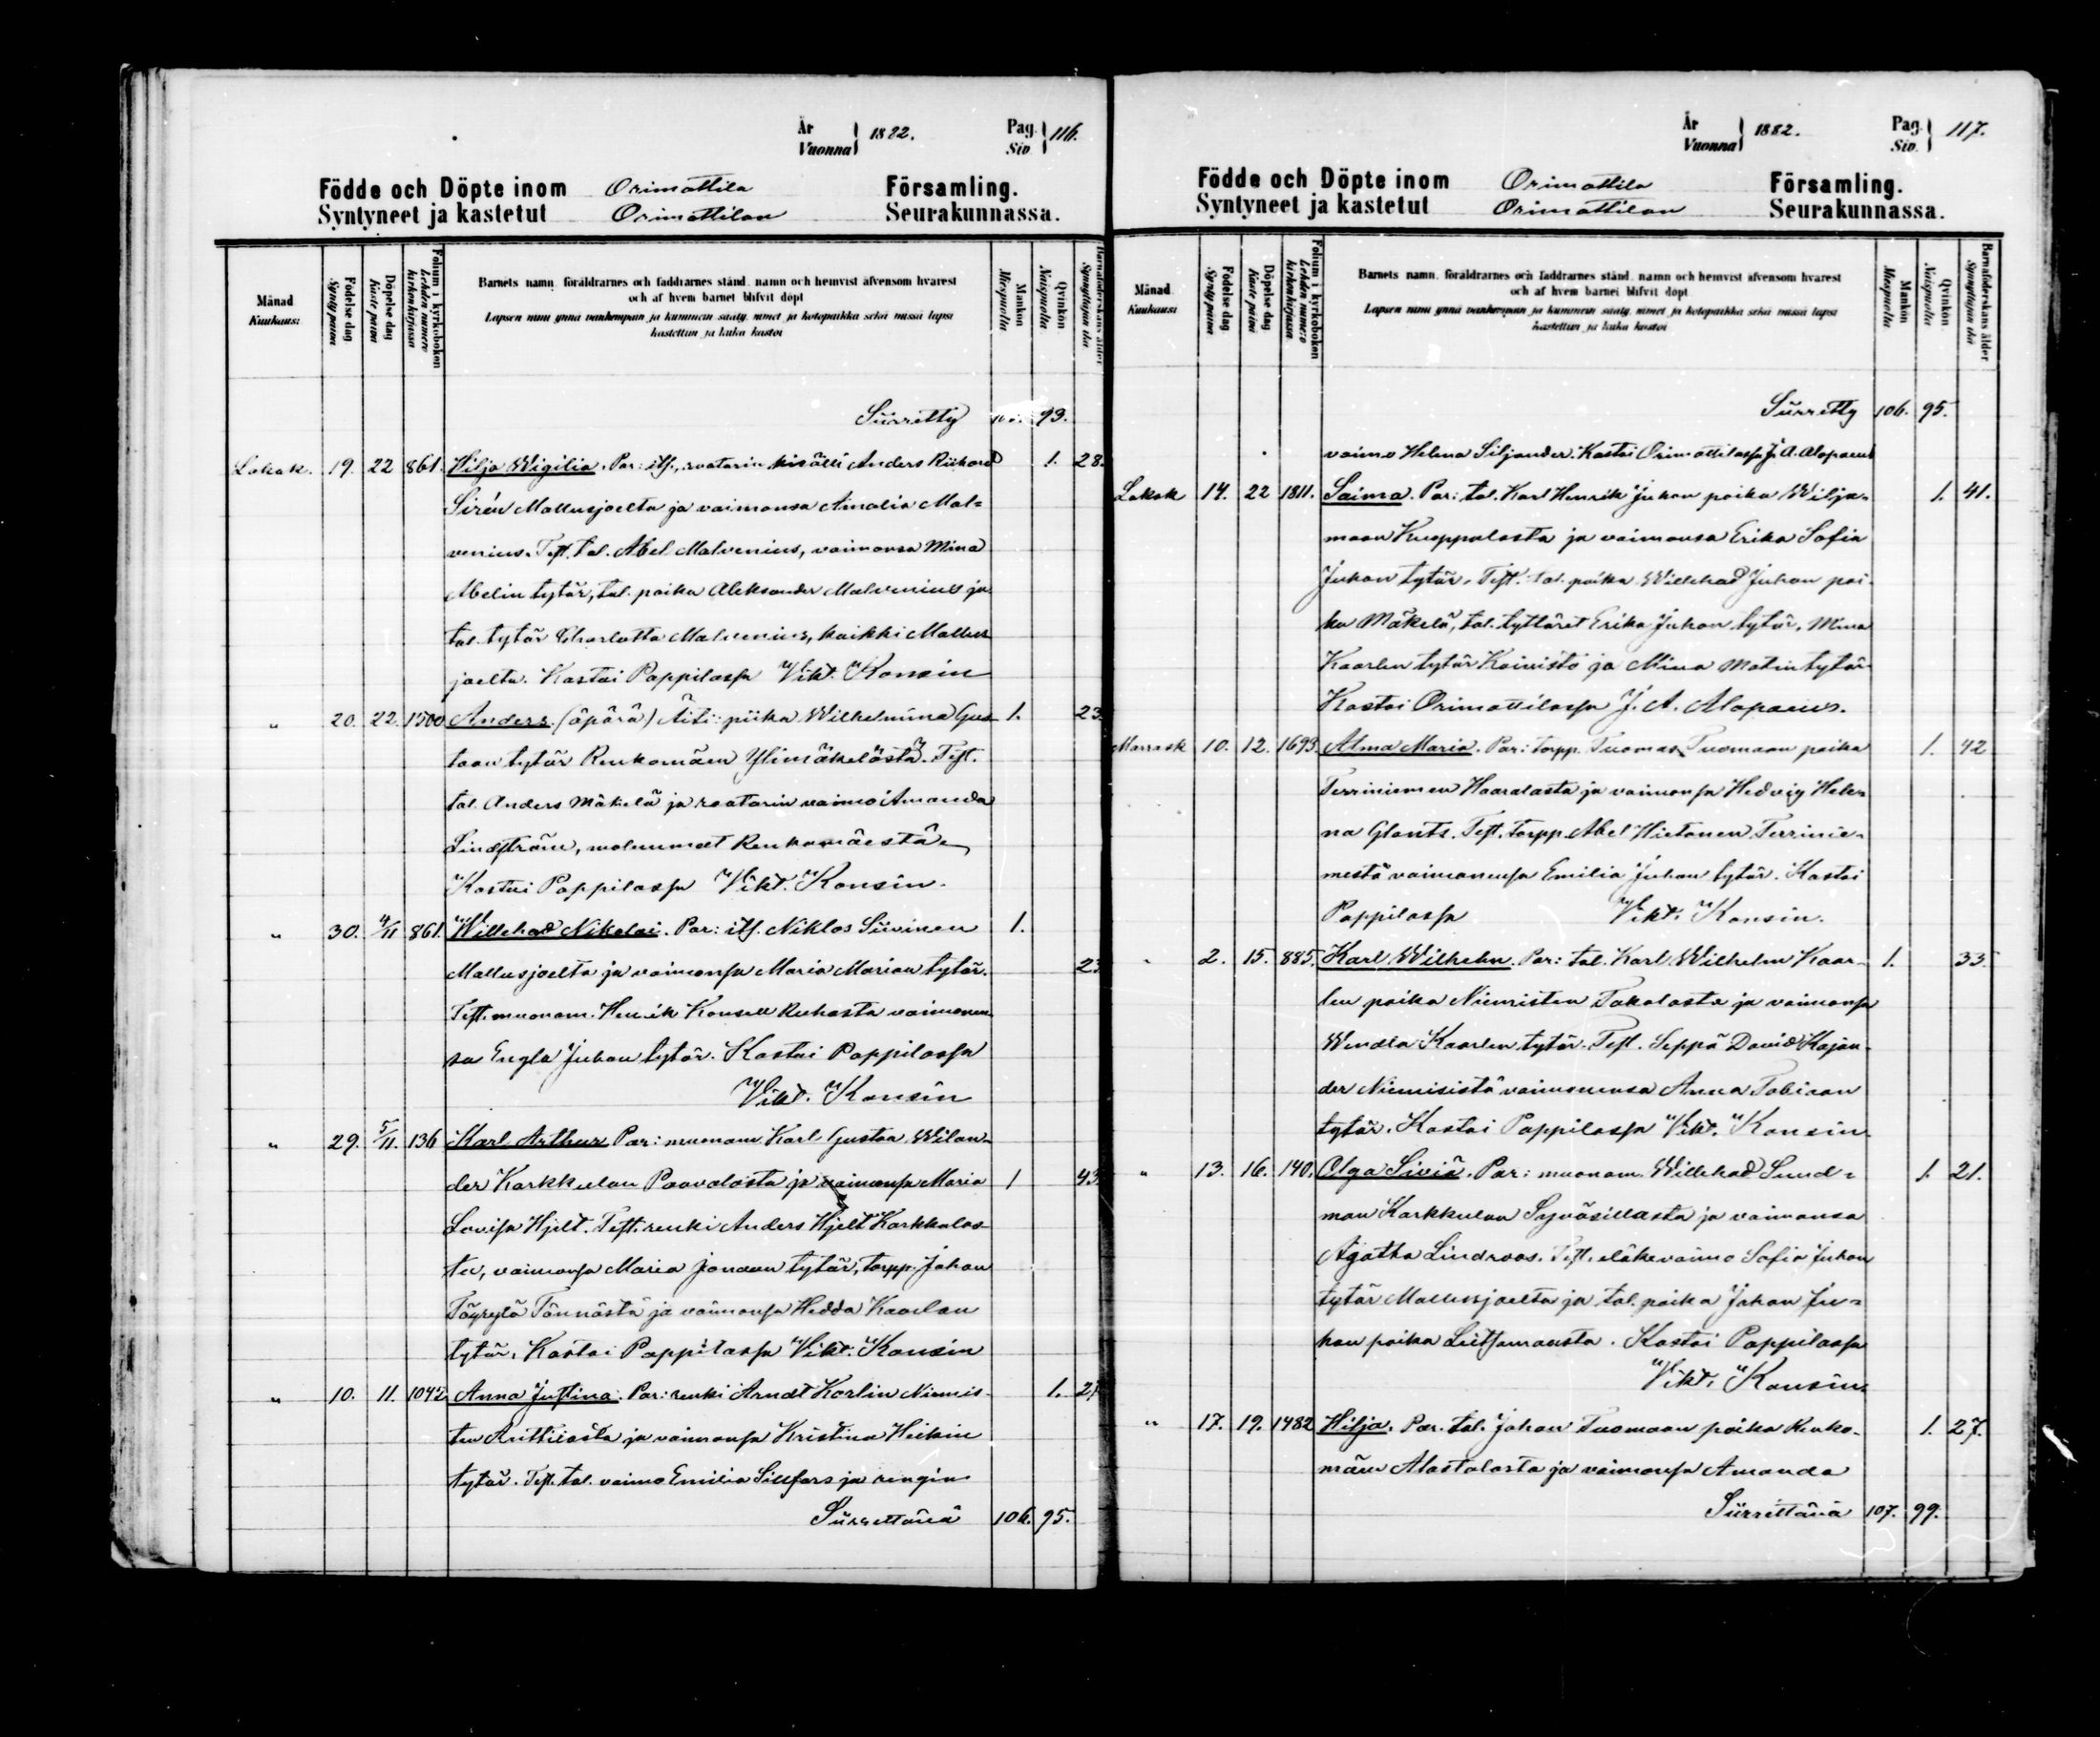 År
Vuonna } 1882. Pag. Siv. } 116.
Födde och Döpte inom Orimattila Församling.
Syntyneet ja kastetut Orimattilan Seurakunnassa.
Månad Kuukausi
Födelse dag Syntypäivä
Döpelse dag Kastepäivä
Folium i kyrkoboken Lehden numero kirkonkirjassa
Barnets namn, föräldrarnes och faddrarnes stånd, namn och hemvist äfvensom hvarest
och af hvem barnet blifvit döpt
Lapsen nimi ynnä vanhempain ja kummein sääty, nimet ja kotopaikka sekä missä lapsi
kastettiin ja kuka kastoi
Mankön Miespuolia
Qvinkön Naispuolia
Barnaföderskans ålder Synnyttäjän ikä
Siirretty 93.
Lokak. 19. 22 861. Hilja Wigilia. Par: itls., raatarin kisälli Anders Rikhard 1. 28.
Sirén Mallusjoelta ja vaimonsa Amalia Mal-
venius. Test. tal. Abel Malvenius, vaimonsa Mina
Abelin tytär, tal. poika Aleksander Malvenius ja
tal. tytär Charlotta Malvenius, kaikki Mallus
joelta. Kastoi Pappilassa Vikt. Konsin
" 20. 22. 1500 Anders. (äpärä) Äiti: piika Wilhelmina Gus- 1. 23
taan tytär Renkomäen Ylimäkelästä. Test.
tal. Anders Mäkelä ja raatarin vaimo Amanda
Lindström, molemmat Renkomäestä.
Kastoi Pappilassa Vikt. Konsin.
" 30. 4/11 861. Willehad Nikolai. Par: itls. Niklas Siivinen 1.
Mallusjoelta ja vaimonsa Maria Marian tytär. 23
Test. muonam. Henrik Konsell Ruhasta vaimonen-
sa Engla Juhan tytär. Kastoi Pappilassa
Vikt. Konsin
" 29. 5/11. 136 Karl Arthur Par: muonam. Karl Gustaa Wilan-
der Karkkulan Paavolasta ja vaimonsa Maria 1 43
Lovisa Hjelt. Test. renki Anders Hjelt Karkkulas-
ta, vaimonsa Maria Joonaan tytär, torpp. Johan
Töyrylä Tönnöstä ja vaimonsa Hedda Kaarlen
tytär. Kastoi Pappilassa Vikt. Konsin
" 10. 11. 1042 Anna Justina. Par: renki Arndt Korlin Niinis- 1. 27
ten Anttilasta ja vaimonsa Kristina Heikin
tytär. Test. tal. vaimo Emilia Sillfors ja rengin
Siirrettävä 106. 95.
År
Vuonna } 1882. Pag. Siv. } 117.
Födde och Döpte inom Orimattila Församling.
Syntyneet ja kastetut Orimattilan Seurakunnassa.
Månad Kuukausi
Födelse dag Syntypäivä
Döpelse dag Kastepäivä
Folium i kyrkoboken Lehden numero kirkonkirjassa
Barnets namn, föräldrarnes och faddrarnes stånd, namn och hemvist äfvensom hvarest
och af hvem barnet blifvit döpt
Lapsen nimi ynnä vanhempain ja kummein sääty, nimet ja kotopaikka sekä missä lapsi
kastettiin ja kuka kastoi
Mankön Miespuolia
Qvinkön Naispuolia
Barnaföderskans ålder Synnyttäjän ikä
Siirretty 106. 95.
vaimo Helena Siljander. Kastoi Orimattilassa J. A. Alopaeus
Lokak 14. 22 1811. Saima. Par: tal. Karl Henrik Juhan poika Wilja- 1. 41.
maan Kuoppalasta ja vaimonsa Erika Sofia
Juhan tytär. Test. tal. poika Willehad Juhan poi-
ka Mäkelä, tal. tyttäret Erika Juhan tytär, Mina
Kaarlen tytär Koivisto ja Mina Matin tytär
Kastoi Orimattilassa J. A. Alopaeus.
Marrask 10. 12. 1693. Alma Maria. Par: torpp. Tuomas Tuomaan poika 1. 42
Terriniemen Haaralasta ja vaimonsa Hedvig Hele-
na Glants. Test. torpp. Abel Hietanen Terrinie-
mestä vaimonensa Emilia Juhan tytär. Kastoi
Pappilassa Vikt. Konsin.
" 2. 15. 885. Karl Wilhelm. Par: tal. Karl Wilhelm Kaar- 1. 33.
len poika Niinisten Takalasta ja vaimonsa
Wendla Kaarlen tytär. Test. Seppä David Kajan-
der Niinisistä vaimonensa Anna Tobiaan
tytär. Kastoi Pappilassa Vikt. Konsin.
" 13. 16. 140. Olga Siviä. Par: muonam. Willehad Sund- 1. 21.
man Karkkulan Syväsillasta ja vaimonsa
Agatha Lindroos. Test. eläkevaimo Sofia Juhan
tytär Mallusjoelta ja tal. poika Johan Ju-
han poika Leitsamaasta. Kastoi Pappilassa
Vikt. Konsin.
" 17. 19. 1482 Hilja. Par. tal. Johan Tuomaan poika Renko- 1. 27.
mäen Alastalosta ja vaimonsa Amanda
Siirrettävä 107. 99.